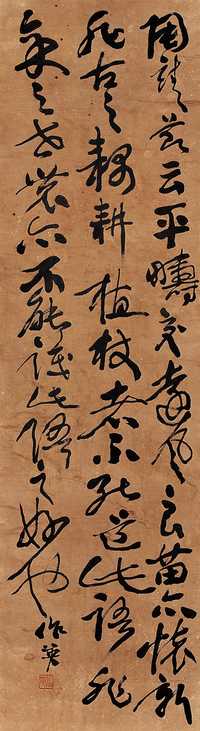 陶靖節云平疇交遠風良苗亦懷新
非古之耦耕植杖者不能道此語非
余之世農亦不能識此語之妙也
作英